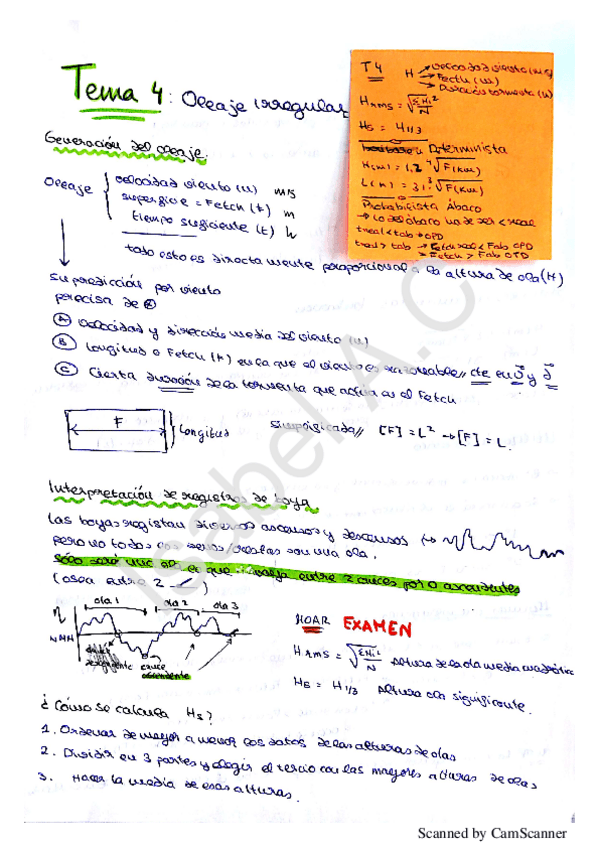 Tema 4: Oleaje irregular
T4
H → velocidad viento (m/s)
→ Fetch (m)
→ Duración tormenta (h)
Hrms = √ΣHi²/N
Hs = H1/3
Determinista
H(m) = 1,2 ⁴√F(km)
L(m) = 31 ³√F(km)
Probabilista Ábaco
→ Lo del ábaco ha de ser < real
treal < tab → OPD
treal > tab → Fetch real < Fab OPD
→ Fetch > Fab OTD
Generación del oleaje.
Oleaje
velocidad viento (u) m/s
superficie = Fetch (F) m
tiempo suficiente (t) h
todo esto es directamente proporcional a la altura de ola (H)
su predicción por viento
precisa de
A velocidad y dirección media del viento (u)
B Longitud o Fetch (F) en la que el viento es razonable// cte en v y d
C Cierta duración de la tormenta que actúa en el Fetch
F
Longitud
simplificada// [F] = L² → [F] = L.
Interpretación de registros de boya
Las boyas registran diversos ascensos y descensos
pero no todos los senos/crestas son una ola.
Sólo será una ola el que haya entre 2 cruces por 0 ascendentes
(osea entre 2 )
ola 1 ola 2 ola 3
η
NMM
cruce
descendente
cruce
ascendente
MOAR EXAMEN
Hrms = √ΣHi²/N Altura de la ola media cuadrática
Hs = H1/3 Altura ola significante.
¿Cómo se calcula Hs?
1. Ordenar de mayor a menor los datos de las alturas de olas
2. Dividir en 3 partes y elegir el tercio con las mayores alturas de olas
3. Hacer la media de esas alturas.
Isabel A.C
Scanned by CamScanner